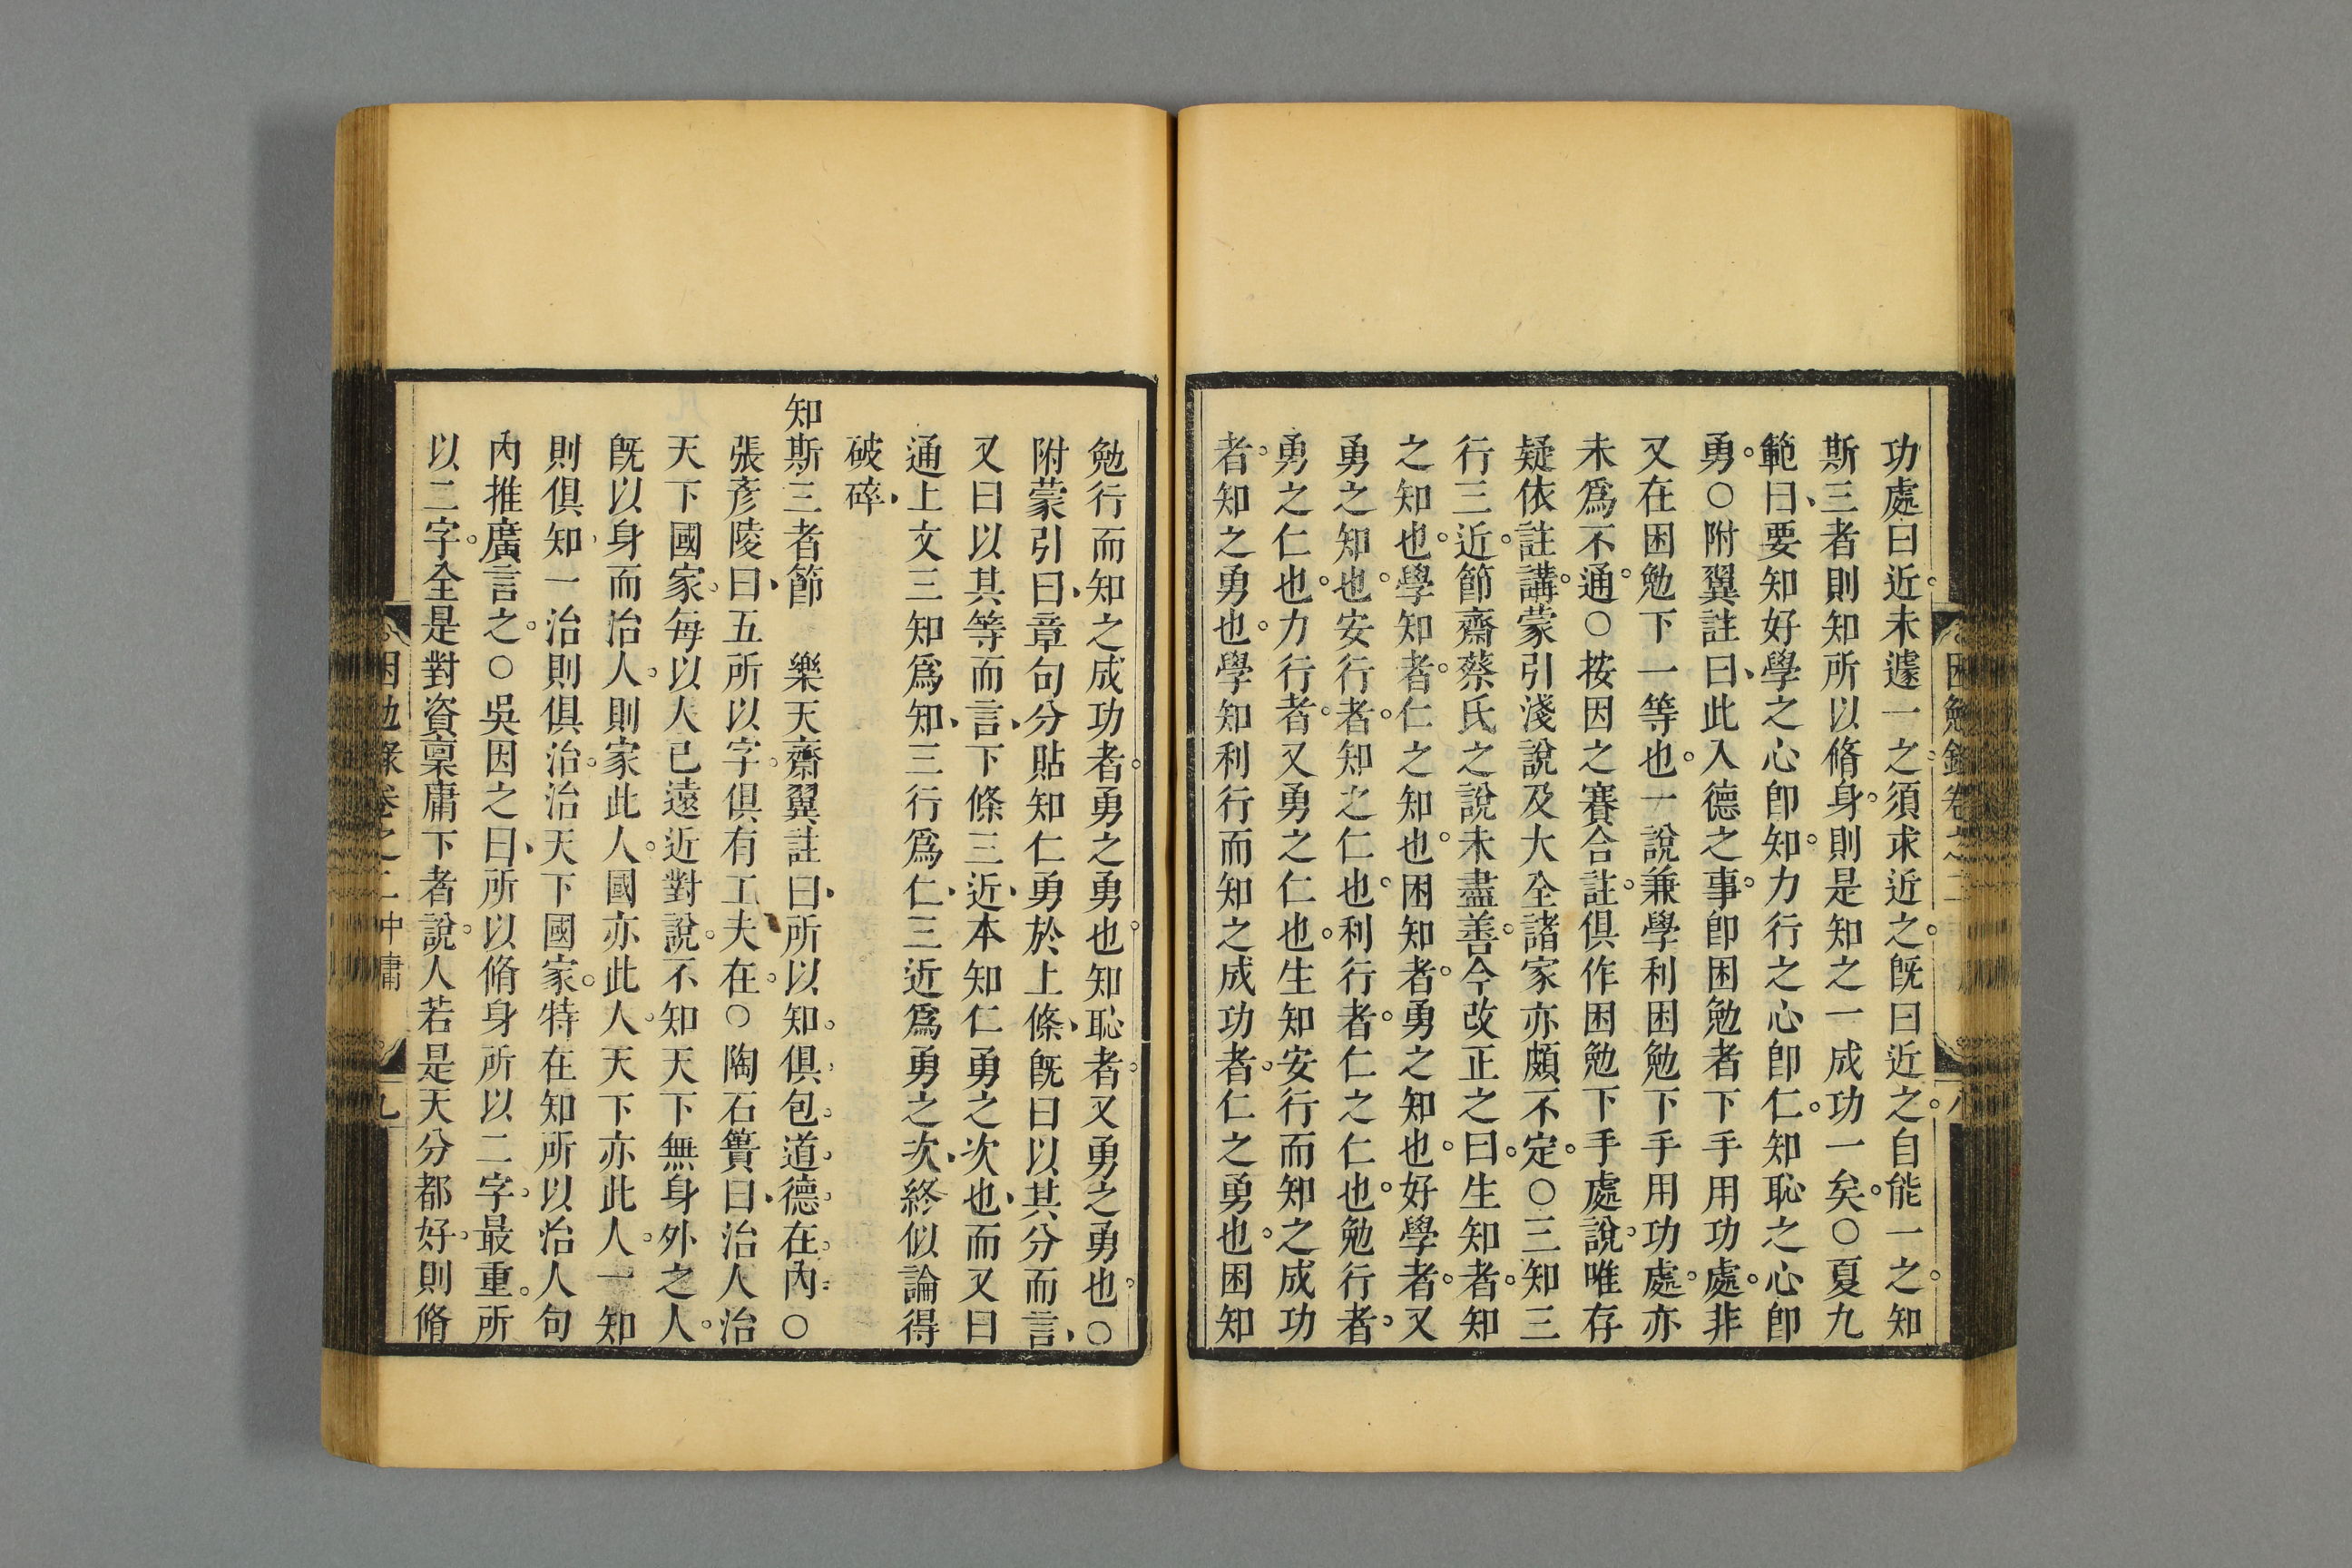 功處曰近未遽一之須求近之旣曰近之自能一之知
斯三者則知所以脩身則是知之一成功一矣○夏九
範曰要知好學之心卽知力行之心卽仁知恥之心卽
勇○附翼註曰此入德之事卽困勉者下手用功處非
又在困勉下一等也一說兼學利困勉下手用功處亦
未爲不通○按因之賽合註俱作困勉下手處說唯存
疑依註講蒙引淺說及大全諸家亦頗不定○三知三
行三近節齋蔡氏之說未盡善今改正之曰生知者知
之知也學知者仁之知也困知者勇之知也好學者又
勇之知也安行者知之仁也利行者仁之仁也勉行者
勇之仁也力行者又勇之仁也生知安行而知之成功
者知之勇也學知利行而知之成功者仁之勇也困知
勉行而知之成功者勇之勇也知恥者又勇之勇也○
附蒙引曰章句分貼知仁勇於上條旣曰以其分而言
又曰以其等而言下條三近本知仁勇之次也而又曰
通上文三知爲知三行爲仁三近爲勇之次終似論得
破碎
知斯三者節　樂天齋翼註曰所以知俱包道德在內○
張彥陵曰五所以字俱有工夫在○陶石簣曰治人治
天下國家每以人已遠近對說不知天下無身外之人
旣以身而治人則家此人國亦此人天下亦此人一知
則俱知一治則俱治治天下國家特在知所以治人句
內推廣言之○吳因之曰所以脩身所以二字最重所
以二字全是對資稟庸下者說人若是天分都好則脩
困勉錄卷之二 中庸 九